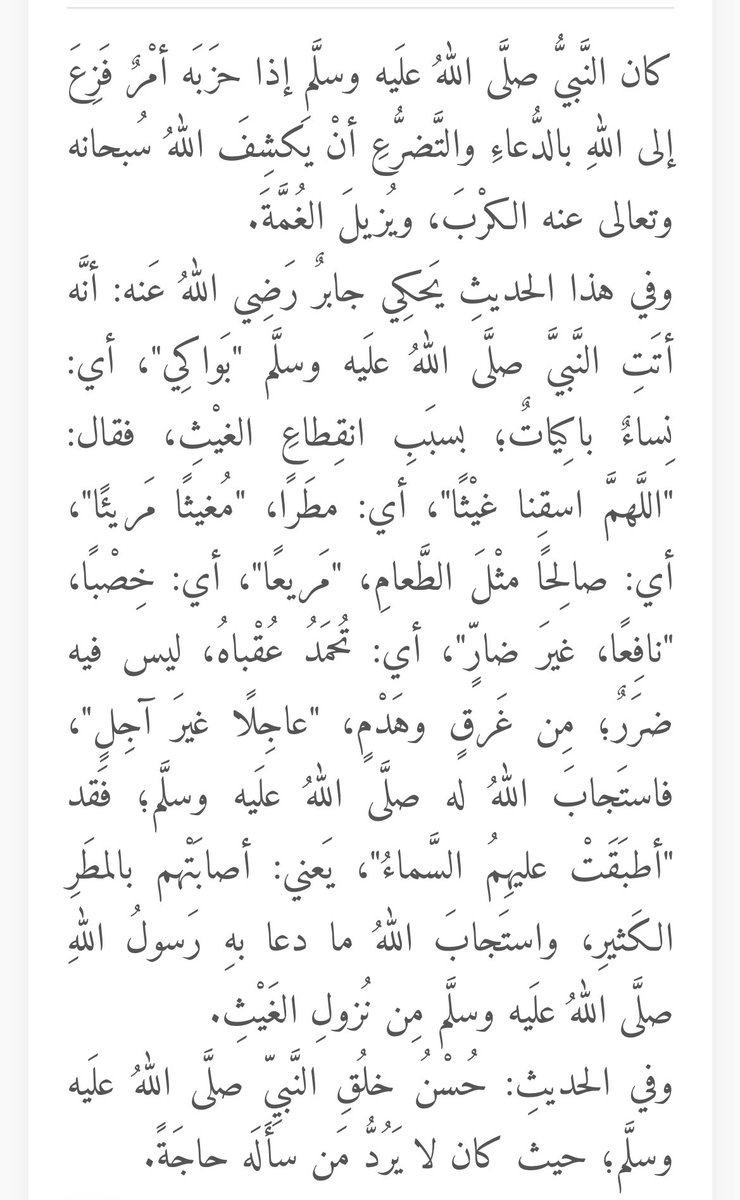 كان النَّبيُّ صلَّى اللهُ علَيه وسلَّم إذا حزَبَه أمْرٌ فَزِعَ
إلى اللهِ بالدُّعاءِ والتَّضرُّعِ أنْ يَكشِفَ اللهُ سُبحانه
وتعالى عنه الكرْبَ، ويُزيلَ الغُمَّةَ.
وفي هذا الحديثِ يَحكِي جابرٌ رَضِي اللهُ عَنه: أنَّه
أتَتِ النَّبيَّ صلَّى اللهُ علَيه وسلَّم "بَواكِي"، أي:
نِساءٌ باكِياتٌ؛ بسبَبِ انقِطاعِ الغيْثِ، فقال:
"اللَّهمَّ اسقِنا غيْثًا"، أي: مطَرًا، "مُغيثًا مَريئًا"،
أي: صالِحًا مثْلَ الطَّعامِ، "مَريعًا"، أي: خِصْبًا،
"نافِعًا، غيرَ ضارٍّ"، أي: تُحمَدُ عُقْباهُ، ليس فيه
ضرَرٌ؛ مِن غَرقٍ وهَدْمٍ، "عاجِلًا غيرَ آجِلٍ"،
فاستَجابَ اللهُ له صلَّى اللهُ علَيه وسلَّم؛ فَقد
"أطبَقَتْ عليهِمُ السَّماءُ"، يَعني: أصابَتْهم بالمطَرِ
الكَثيرِ، واستَجابَ اللهُ ما دعا بهِ رَسولُ اللهِ
صلَّى اللهُ علَيه وسلَّم مِن نُزولِ الغَيْثِ.
وفي الحديثِ: حُسْنُ خلُقِ النَّبيِّ صلَّى اللهُ علَيه
وسلَّم؛ حيث كان لا يَرُدُّ مَن سأَلَه حاجَةً.